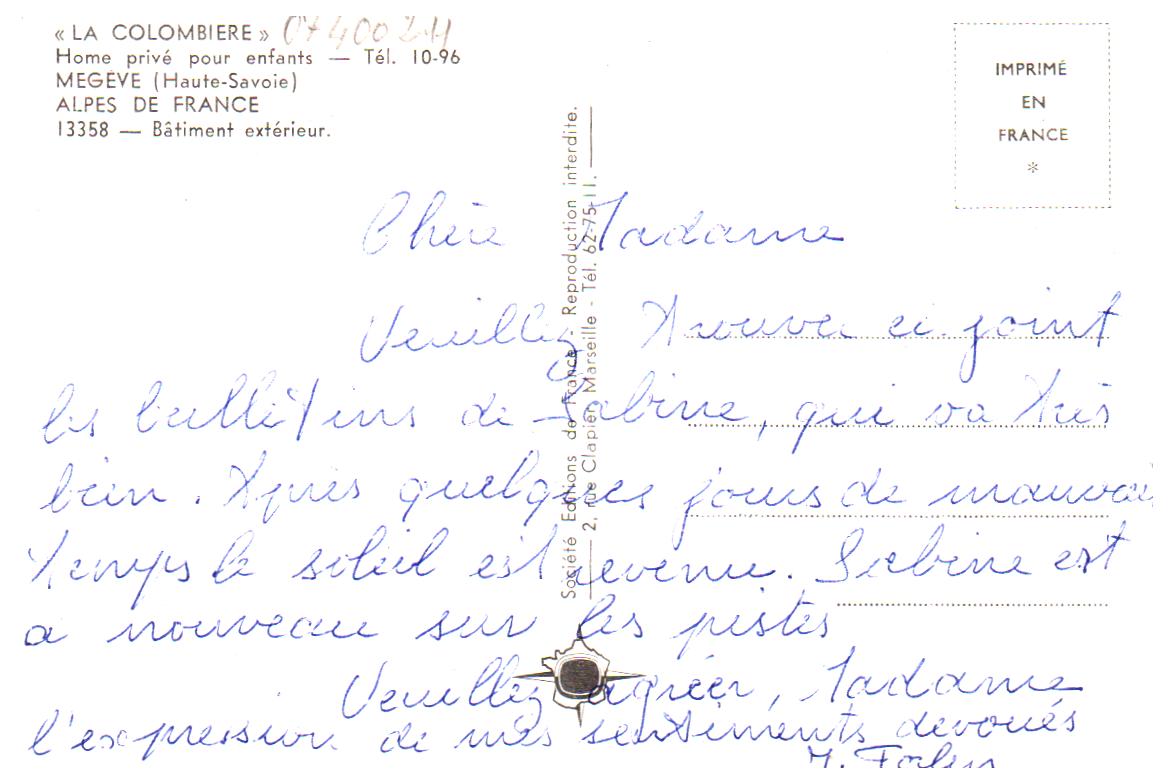 « LA COLOMBIERE » 0740024
Home privé pour enfants — Tél. 10-96
MEGÈVE (Haute-Savoie)
ALPES DE FRANCE
13358 — Bâtiment extérieur.
IMPRIMÉ
EN
FRANCE
*
Société Editions de France Reproduction interdite.
2, rue Clapier, Marseille - Tél. 62-75-11.
Chère Madame
Veuillez trouver ci joint
les bulletins de Sabine, qui va très
bien. Après quelques jours de mauvais
temps le soleil est revenu. Sabine est
à nouveau sur les pistes
Veuillez agréer, Madame
l'expression de mes sentiments dévoués